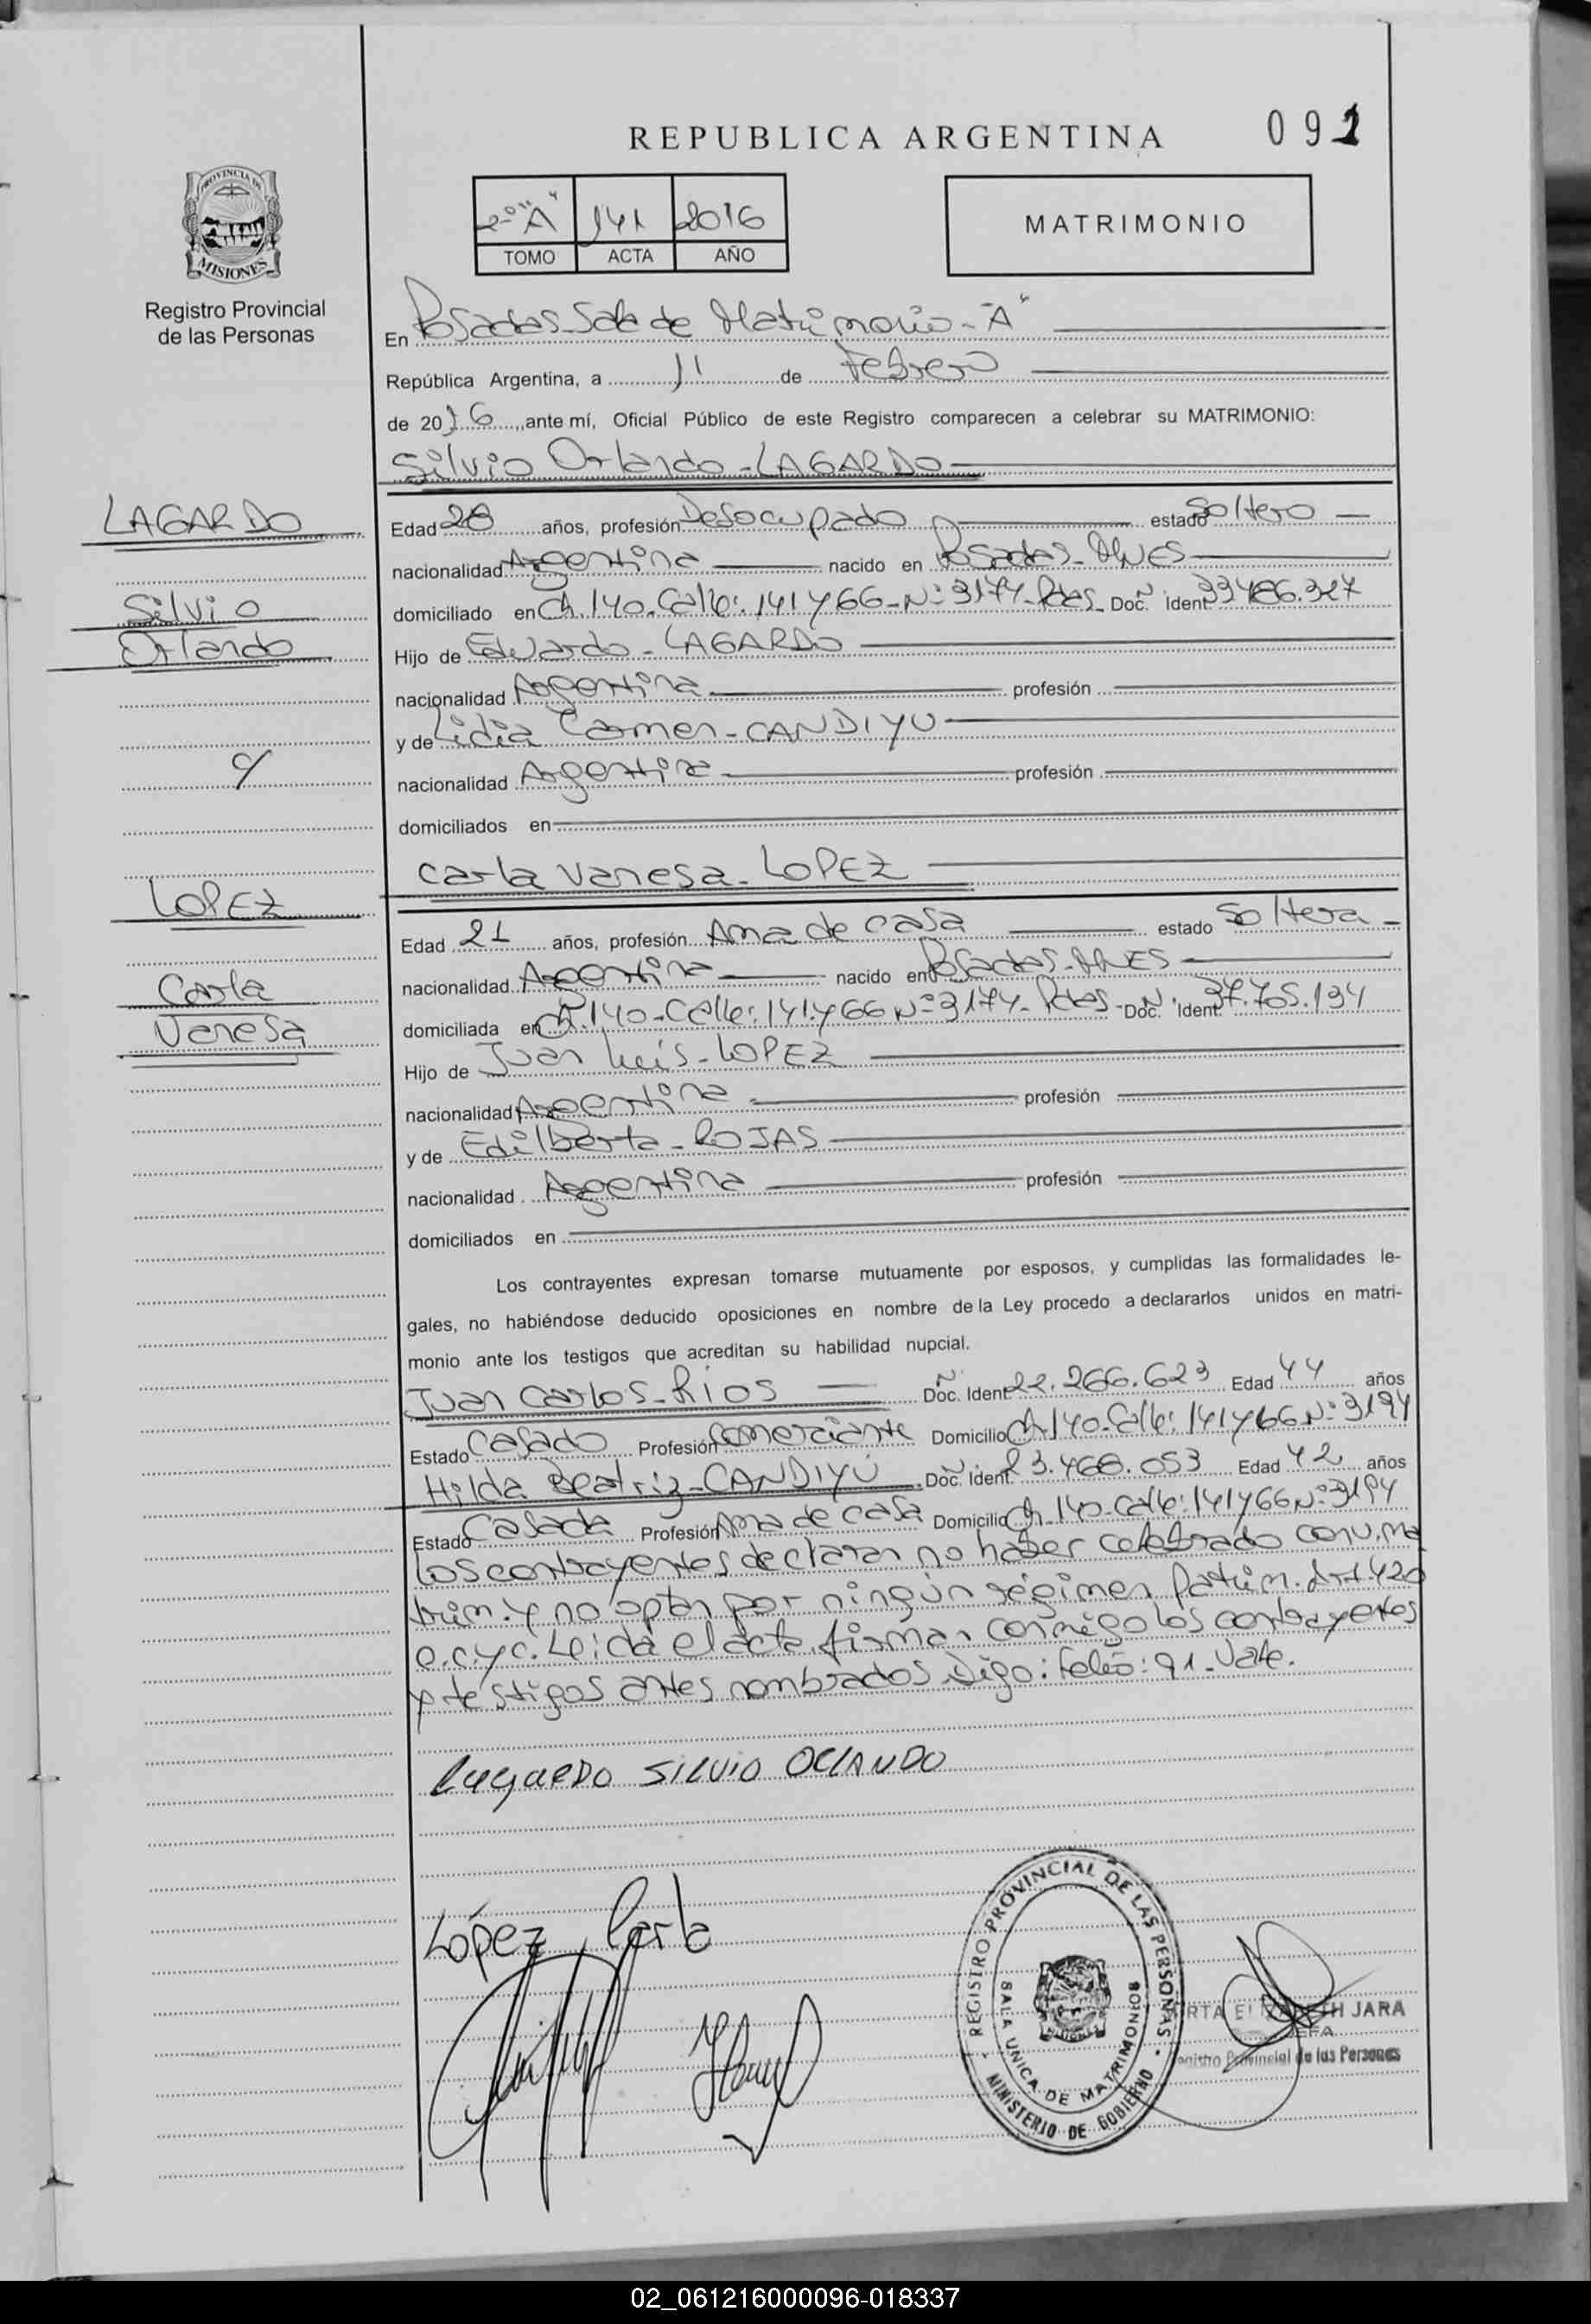 REPUBLICA ARGENTINA
091
PROVINCIA DE
MISIONES
Registro Provincial
de las Personas
2º "A" 141 2016
TOMO ACTA AÑO
MATRIMONIO
En Posadas Sala de Matrimonio - "A"
República Argentina, a 11 de Febrero
de 2016, ante mí, Oficial Público de este Registro comparecen a celebrar su MATRIMONIO:
Silvio Orlando - LAGARDO
LAGARDO
Silvio
Orlando
c/
LOPEZ
Carla
Vanesa
Edad 28 años, profesión Desocupado estado Soltero
nacionalidad Argentina nacido en Posadas - MNES
domiciliado en Ch. 140 - Calle: 141 y 66 - Nº 3174 - Pdas - Doc. Ident. 33.486.327
Hijo de Eduardo - LAGARDO
nacionalidad Argentina profesión
y de Lidia Carmen - CANDIYU
nacionalidad Argentina profesión
domiciliados en
Carla Vanesa - LOPEZ
Edad 21 años, profesión Ama de casa estado Soltera
nacionalidad Argentina nacido en Posadas - MNES
domiciliada en Ch. 140 - Calle: 141 y 66 Nº 3174 - Pdas - Doc. Ident. 37.705.134
Hijo de Juan Luis - LOPEZ
nacionalidad Argentina profesión
y de Edilberta - ROJAS
nacionalidad Argentina profesión
domiciliados en
Los contrayentes expresan tomarse mutuamente por esposos, y cumplidas las formalidades le-
gales, no habiéndose deducido oposiciones en nombre de la Ley procedo a declararlos unidos en matri-
monio ante los testigos que acreditan su habilidad nupcial.
Juan Carlos - Rios Doc. Ident. 22.266.623 Edad 44 años
Estado Casado Profesión Comerciante Domicilio Ch. 140 - Calle: 141 y 66 Nº 3194
Hilda Beatriz - CANDIYÚ Doc. Ident. 23.468.053 Edad 42 años
Estado Casada Profesión Ama de casa Domicilio Ch. 140 - Calle: 141 y 66 Nº 3194
Los contrayentes declaran no haber celebrado conv. ma
trim. y no optan por ningún régimen Patrim. Art 420
e. c y c. Leida el acta, firman conmigo los contrayentes
y testigos antes nombrados. Digo: Folio: 91 - Vale.
Lagardo Silvio Orlando
López Carla
REGISTRO PROVINCIAL DE LAS PERSONAS
SALA UNICA DE MATRIMONIOS
MINISTERIO DE GOBIERNO
JARA
JEFA
Registro Provincial de las Personas
02_061216000096-018337